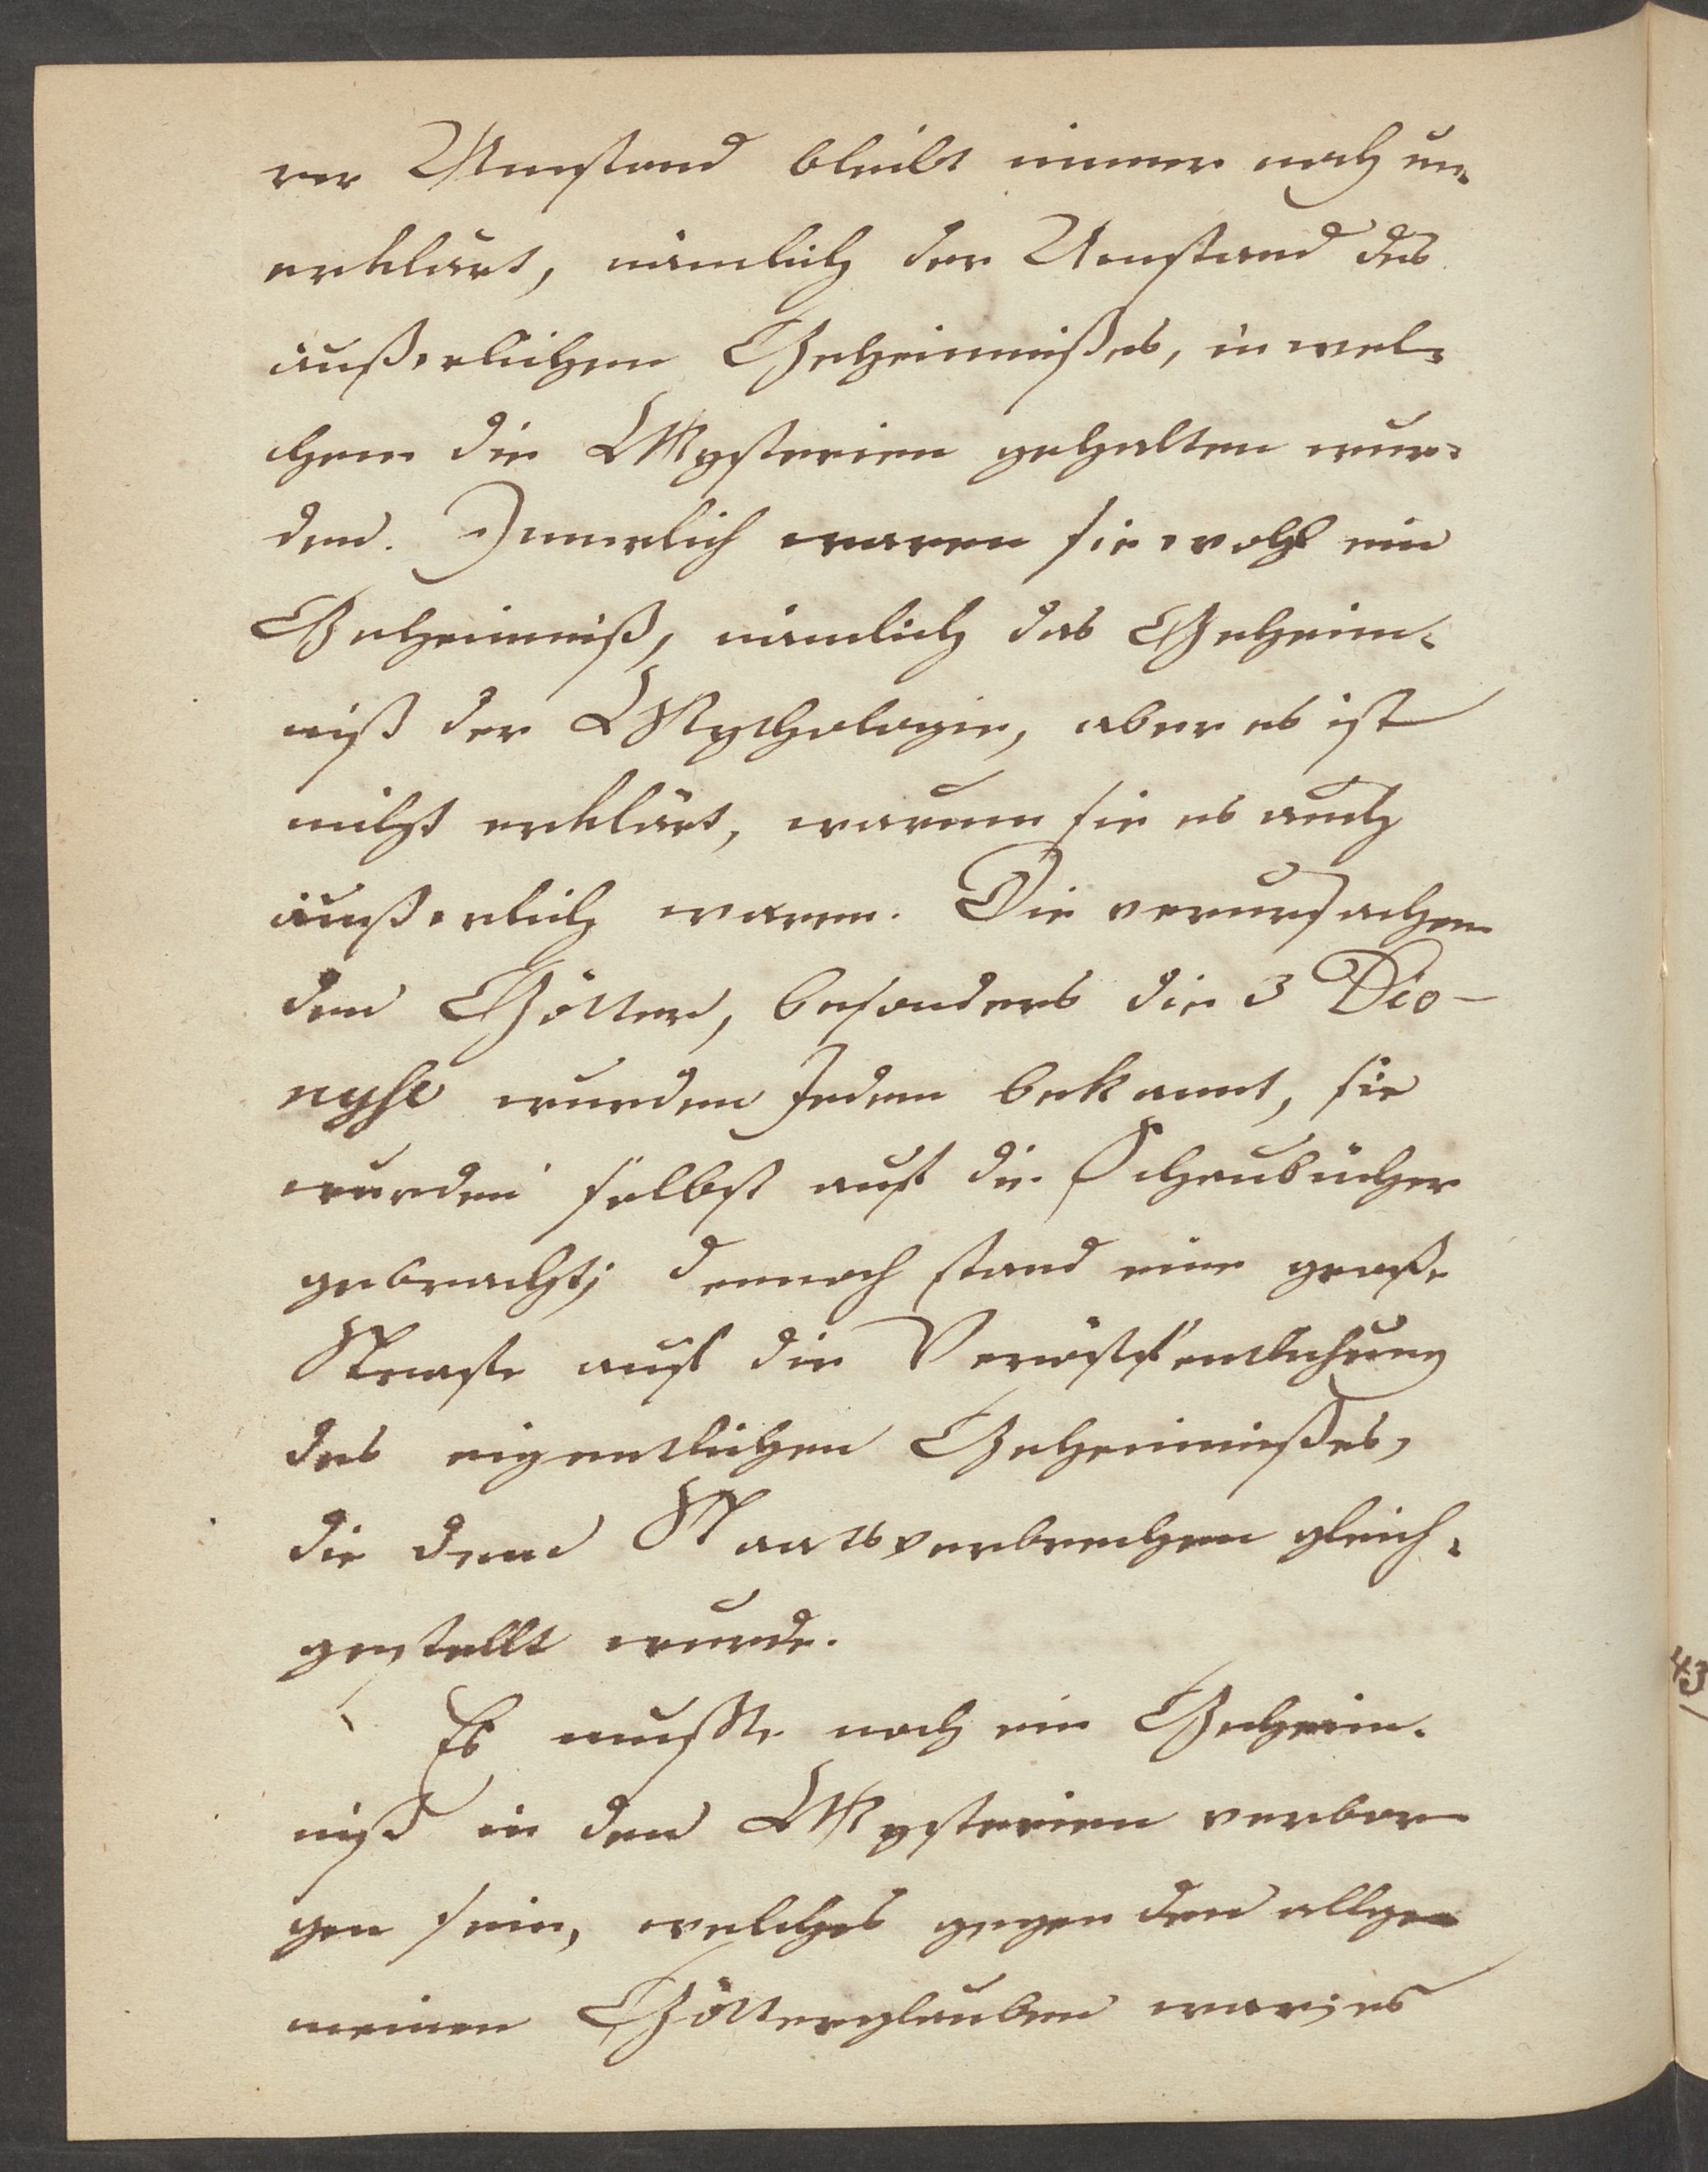 rer Umstand bleibt immer noch un-
erklärt, nämlich der Umstand des
äußerlichen Geheimnißes, in wel-
chem die Mysterien gehalten wur-
den. Innerlich waren sie wohl ein
Geheimniß, nämlich das Geheim-
niß der Mythologie, aber es ist
nicht erklärt, warum sie es auch
äußerlich waren. Die verursachen
den Götter, besonders die 3 Dio-
nyse wurden Jedem bekannt, sie
wurden selbst auf die Schaubücher
gebracht; dennoch stand eine große
Strafe auf die Veröffentlichung
des eigentlichen Geheimnißes,
die dem Staatsverbrechen gleich-
gestellt wurde.
Es mußte noch ein Geheim-
niß in den Mysterien verbor-
gen sein, welches gegen den allge-
meinen Götterglauben war; es
43